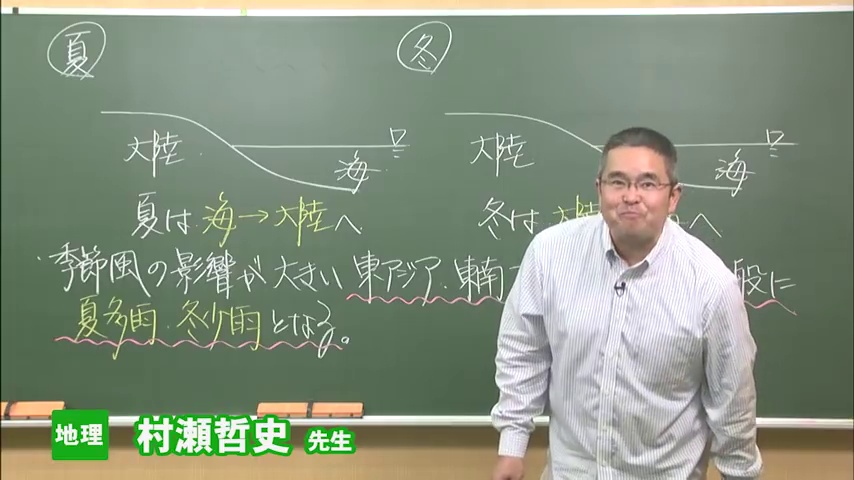 夏
冬
大陸 海
大陸 海
夏は 海→大陸へ
冬は 大陸 へ
季節風の影響が大きい東アジア・東南 般に
夏多雨・冬少雨となる。
地理 村瀬哲史 先生